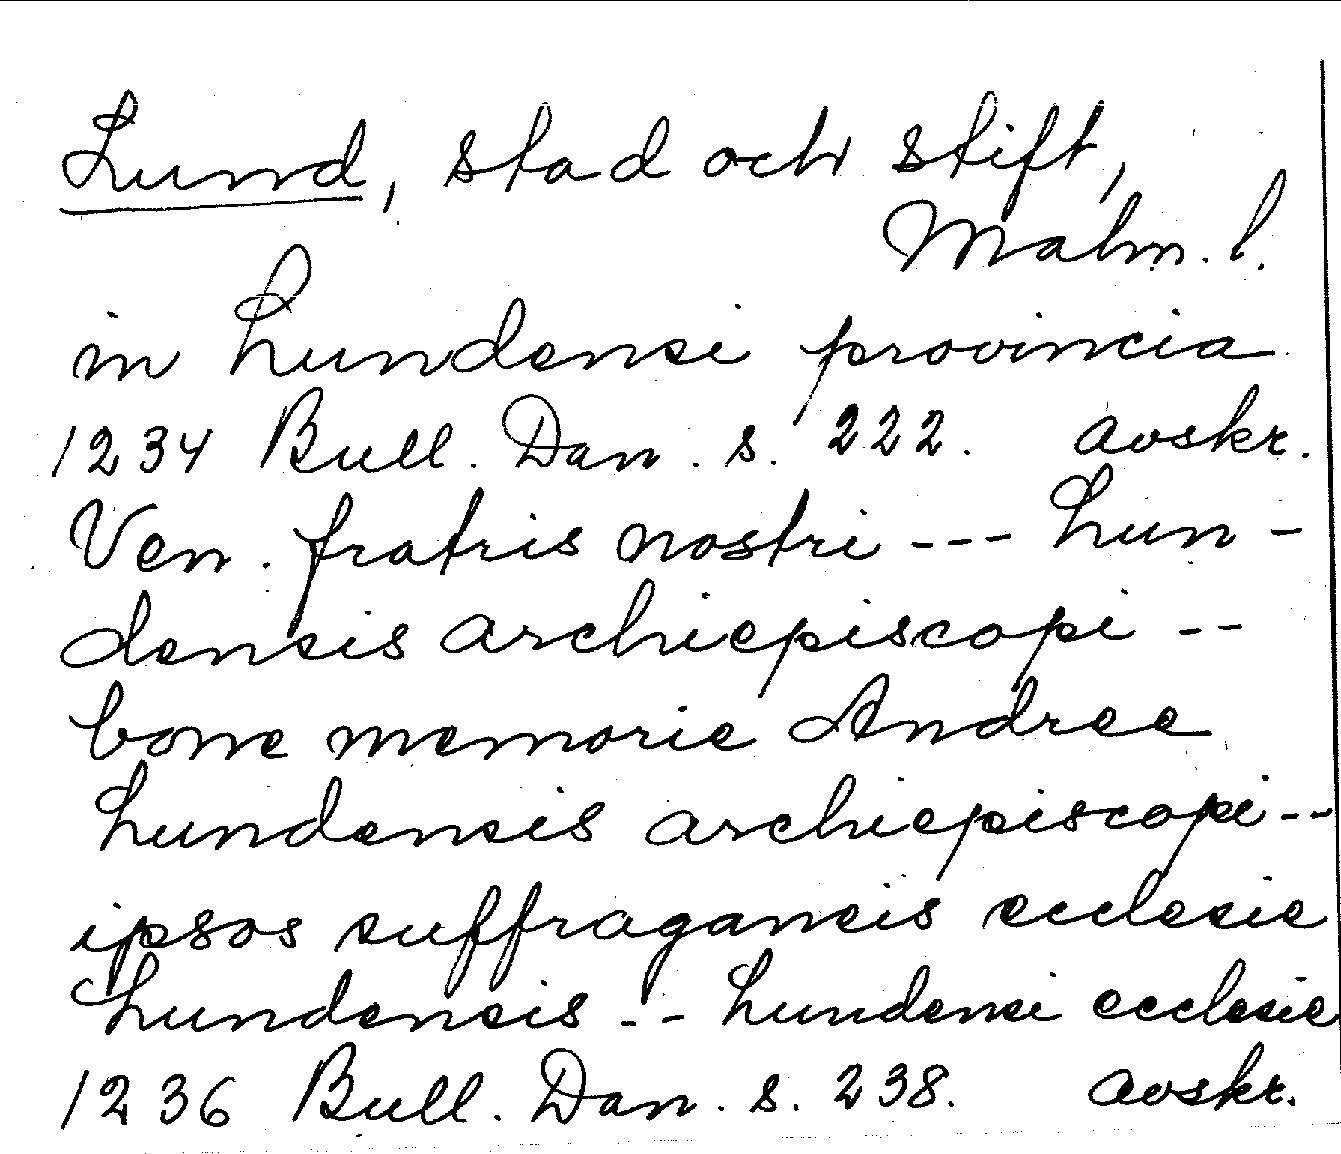 Lund, stad och stift,
Malm. l.
in Lundensi provincia
1234 Bull. Dan. s. 222. avskr.
Ven. fratris nostri --- Lun-
densis archiepiscopi --
bone memorie Andree
Lundensis archiepiscopi --
ipsos suffraganeis ecclesie
Lundensis -- Lundensi ecclesie
1236 Bull. Dan. s. 238. avskr.